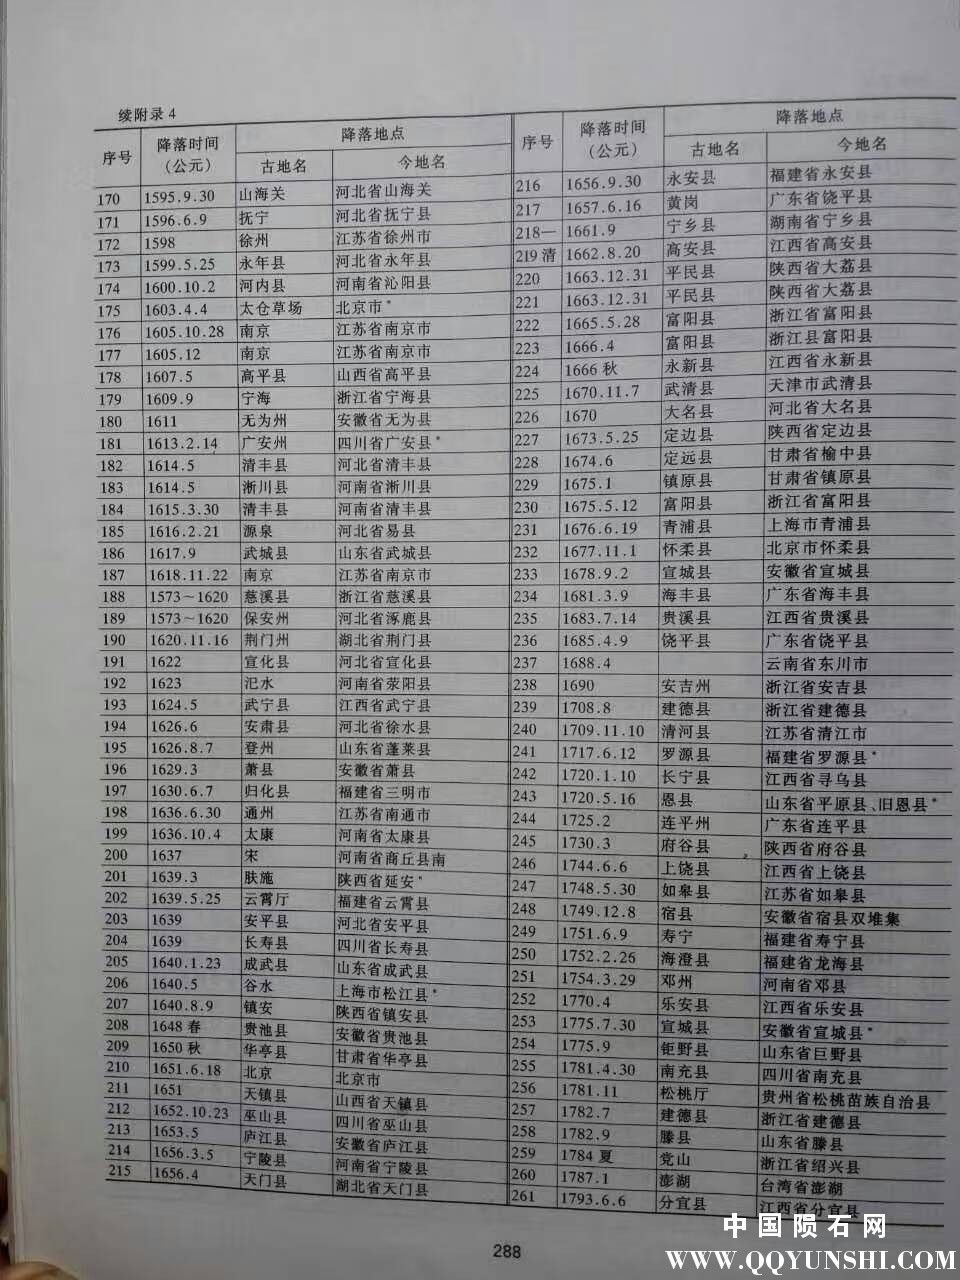 续附录4
序号 降落时间(公元) 降落地点 古地名 今地名
170 1595.9.30 山海关 河北省山海关
171 1596.6.9 抚宁 河北省抚宁县
172 1598 徐州 江苏省徐州市
173 1599.5.25 永年县 河北省永年县
174 1600.10.2 河内县 河南省沁阳县
175 1603.4.4 太仓草场 北京市*
176 1605.10.28 南京 江苏省南京市
177 1605.12 南京 江苏省南京市
178 1607.5 高平县 山西省高平县
179 1609.9 宁海 浙江省宁海县
180 1611 无为州 安徽省无为县
181 1613.2.14 广安州 四川省广安县*
182 1614.5 清丰县 河北省清丰县
183 1614.5 淅川县 河南省淅川县
184 1615.3.30 清丰县 河南省清丰县
185 1616.2.21 源泉 河北省易县
186 1617.9 武城县 山东省武城县
187 1618.11.22 南京 江苏省南京市
188 1573~1620 慈溪县 浙江省慈溪县
189 1573~1620 保安州 河北省涿鹿县
190 1620.11.16 荆门州 湖北省荆门县
191 1622 宣化县 河北省宣化县
192 1623 汜水 河南省荥阳县
193 1624.5 武宁县 江西省武宁县
194 1626.6 安肃县 河北省徐水县
195 1626.8.7 登州 山东省蓬莱县
196 1629.3 萧县 安徽省萧县
197 1630.6.7 归化县 福建省三明市
198 1636.6.30 通州 江苏省南通市
199 1636.10.4 太康 河南省太康县
200 1637 宋 河南省商丘县南
201 1639.3 肤施 陕西省延安*
202 1639.5.25 云霄厅 福建省云霄县
203 1639 安平县 河北省安平县
204 1639 长寿县 四川省长寿县
205 1640.1.23 成武县 山东省成武县
206 1640.5 谷水 上海市松江县*
207 1640.8.9 镇安 陕西省镇安县
208 1648春 贵池县 安徽省贵池县
209 1650秋 华亭县 甘肃省华亭县
210 1651.6.18 北京 北京市
211 1651 天镇县 山西省天镇县
212 1652.10.23 巫山县 四川省巫山县
213 1653.5 庐江县 安徽省庐江县
214 1656.3.5 宁陵县 河南省宁陵县
215 1656.4 天门县 湖北省天门县
序号 降落时间(公元) 降落地点 古地名 今地名
216 1656.9.30 永安县 福建省永安县
217 1657.6.16 黄岗 广东省饶平县
218— 1661.9 宁乡县 湖南省宁乡县
219清 1662.8.20 高安县 江西省高安县
220 1663.12.31 平民县 陕西省大荔县
221 1663.12.31 平民县 陕西省大荔县
222 1665.5.28 富阳县 浙江省富阳县
223 1666.4 富阳县 浙江县富阳县
224 1666秋 永新县 江西省永新县
225 1670.11.7 武清县 天津市武清县
226 1670 大名县 河北省大名县
227 1673.5.25 定边县 陕西省定边县
228 1674.6 定远县 甘肃省榆中县
229 1675.1 镇原县 甘肃省镇原县
230 1675.5.12 富阳县 浙江省富阳县
231 1676.6.19 青浦县 上海市青浦县
232 1677.11.1 怀柔县 北京市怀柔县
233 1678.9.2 宣城县 安徽省宣城县
234 1681.3.9 海丰县 广东省海丰县
235 1683.7.14 贵溪县 江西省贵溪县
236 1685.4.9 饶平县 广东省饶平县
237 1688.4 云南省东川市
238 1690 安吉州 浙江省安吉县
239 1708.8 建德县 浙江省建德县
240 1709.11.10 清河县 江苏省清江市
241 1717.6.12 罗源县 福建省罗源县*
242 1720.1.10 长宁县 江西省寻乌县
243 1720.5.16 恩县 山东省平原县、旧恩县*
244 1725.2 连平州 广东省连平县
245 1730.3 府谷县 陕西省府谷县
246 1744.6.6 上饶县 江西省上饶县
247 1748.5.30 如皋县 江苏省如皋县
248 1749.12.8 宿县 安徽省宿县双堆集
249 1751.6.9 寿宁 福建省寿宁县
250 1752.2.26 海澄县 福建省龙海县
251 1754.3.29 邓州 河南省邓县
252 1770.4 乐安县 江西省乐安县
253 1775.7.30 宣城县 安徽省宣城县*
254 1775.9 钜野县 山东省巨野县
255 1781.4.30 南充县 四川省南充县
256 1781.11 松桃厅 贵州省松桃苗族自治县
257 1782.7 建德县 浙江省建德县
258 1782.9 滕县 山东省滕县
259 1784夏 党山 浙江省绍兴县
260 1787.1 澎湖 台湾省澎湖
261 1793.6.6 分宜县 江西省分宜县
288
中国陨石网
WWW.QQYUNSHI.COM